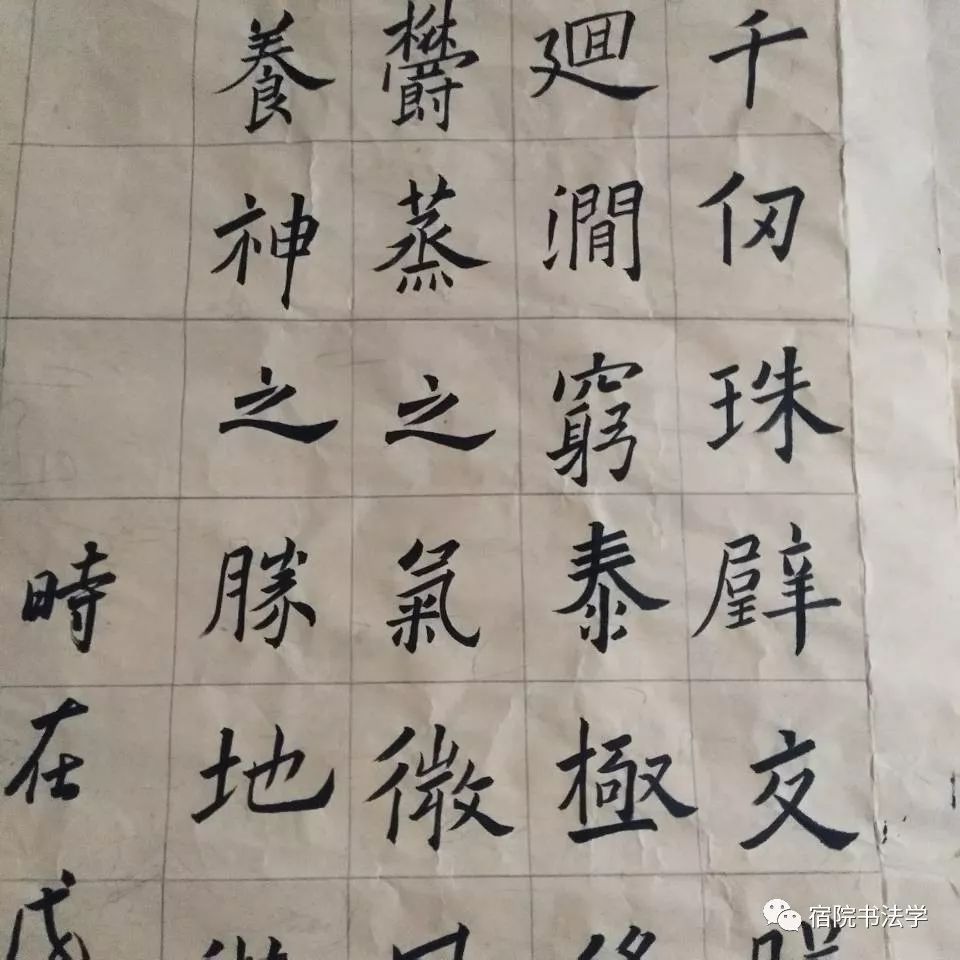 千仞珠壁交
廻澗窮泰極
欝蒸之氣微
養神之勝地
時在戊
宿院书法学